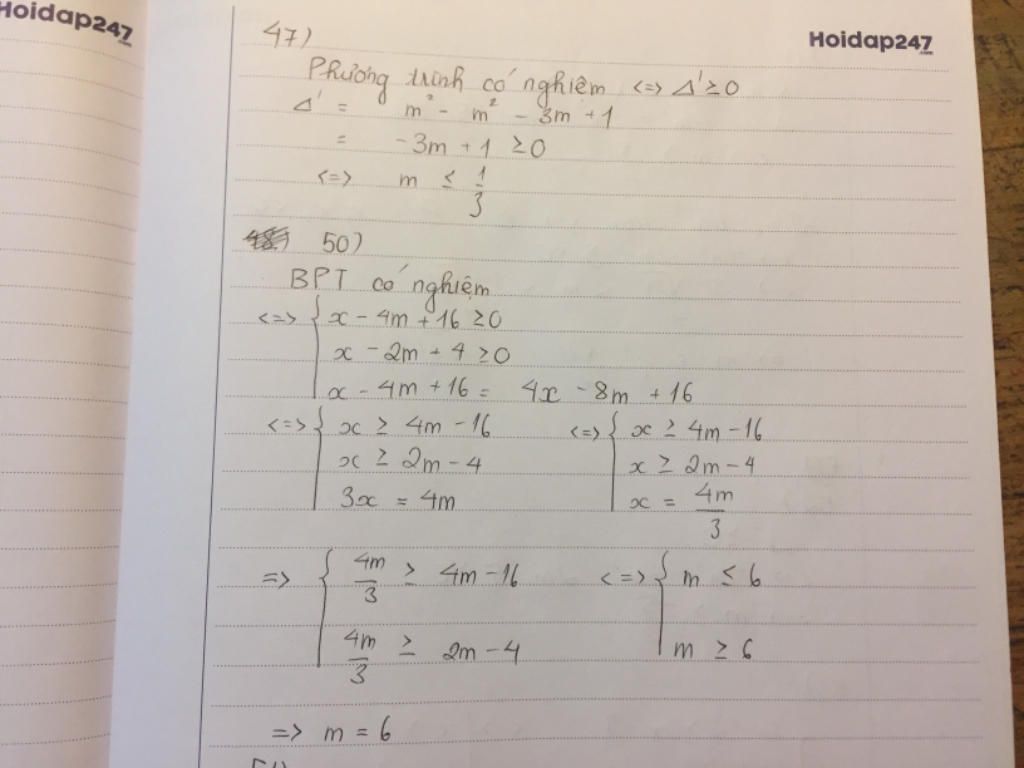 Hoidap247
.com
Hoidap247
.com
47)
Phương trình có nghiệm <=> Δ' ≥ 0
Δ' = m² - m² - 3m + 1
= -3m + 1 ≥ 0
<=> m ≤ 1/3
50)
BPT có nghiệm
<=> { x - 4m + 16 ≥ 0
x - 2m + 4 ≥ 0
x - 4m + 16 = 4x - 8m + 16
<=> { x ≥ 4m - 16 <=> { x ≥ 4m - 16
x ≥ 2m - 4 x ≥ 2m - 4
3x = 4m x = 4m/3
=> { 4m/3 ≥ 4m - 16 <=> { m ≤ 6
4m/3 ≥ 2m - 4 m ≥ 6
=> m = 6